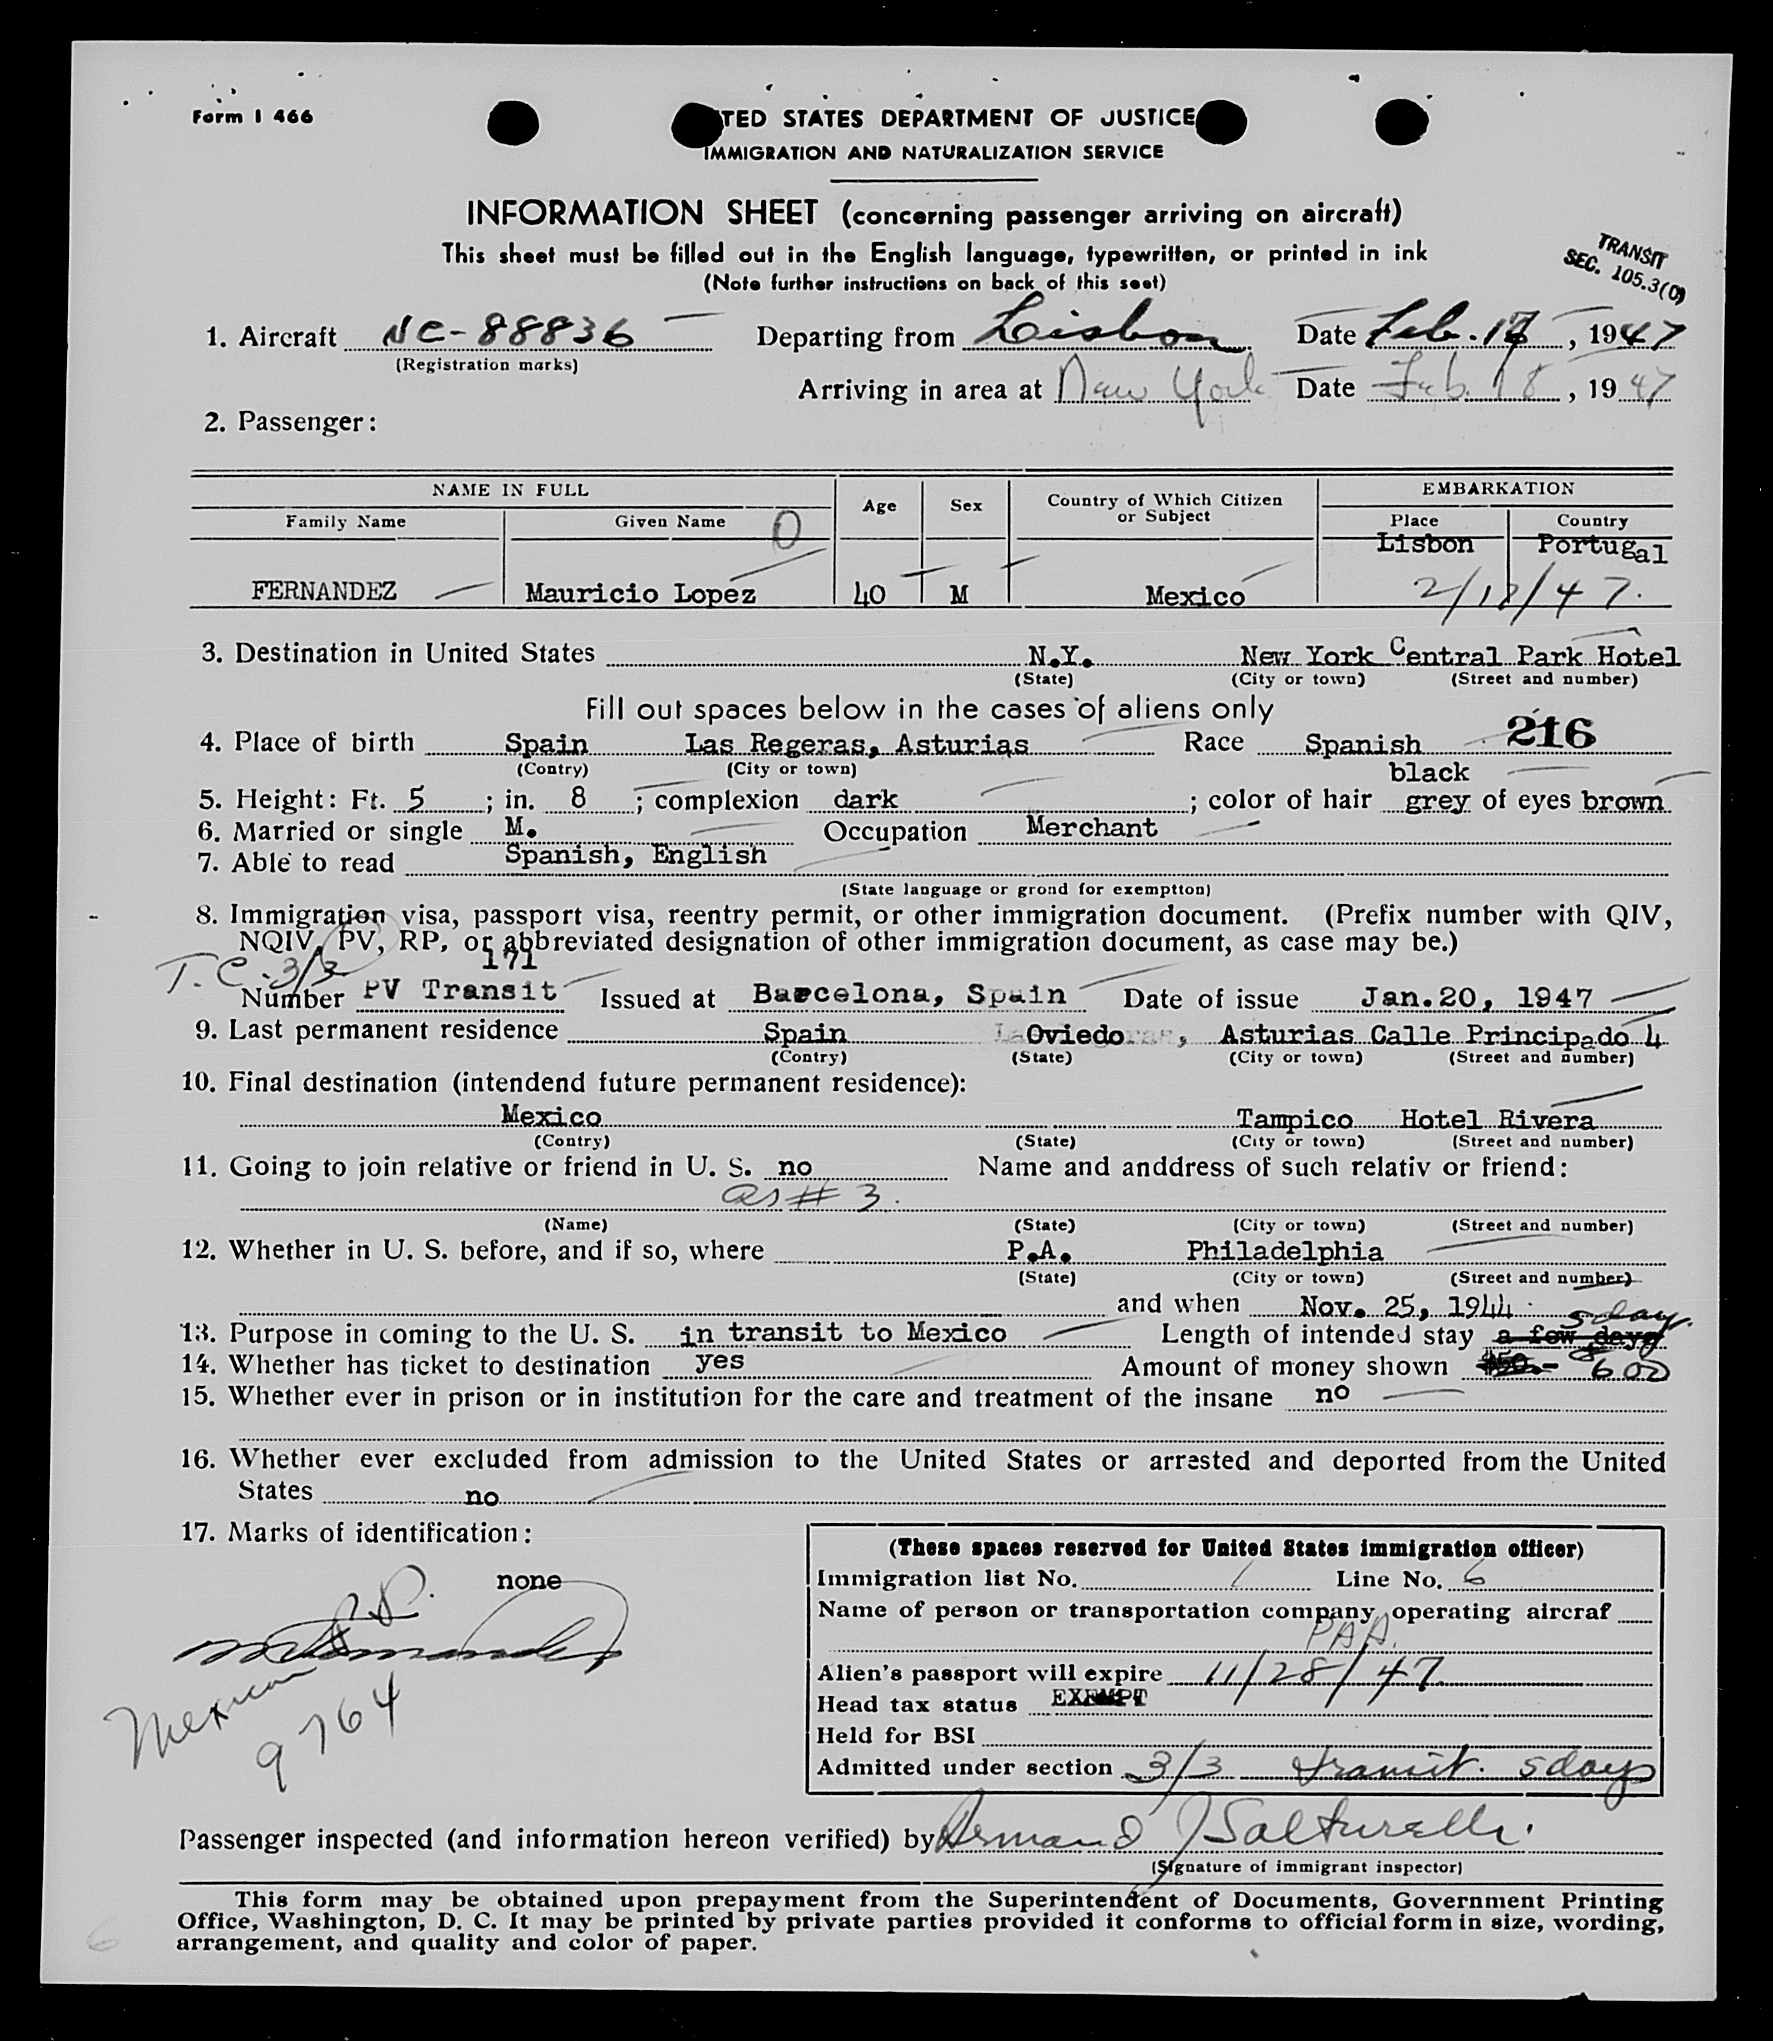 Form I 466
TED STATES DEPARTMENT OF JUSTICE
IMMIGRATION AND NATURALIZATION SERVICE
INFORMATION SHEET (concerning passenger arriving on aircraft)
This sheet must be filled out in the English language, typewritten, or printed in ink
(Note further instructions on back of this seet)
TRANSIT
SEC. 105.3(0)
1. Aircraft NC-88836 Departing from Lisbon Date Feb. , 1947
(Registration marks)
Arriving in area at New York Date Feb. 18, 1947
2. Passenger:
NAME IN FULL Age Sex Country of Which Citizen or Subject EMBARKATION
Family Name Given Name 0 Place Country
Lisbon Portugal
FERNANDEZ Mauricio Lopez 40 M Mexico 2/18/47.
3. Destination in United States N.Y. New York Central Park Hotel
(State) (City or town) (Street and number)
Fill out spaces below in the cases of aliens only
4. Place of birth Spain Las Regeras, Asturias Race Spanish 216
(Contry) (City or town)
black
5. Height: Ft. 5 ; in. 8 ; complexion dark ; color of hair grey of eyes brown
6. Married or single M. Occupation Merchant
7. Able to read Spanish, English
(State language or grond for exemptton)
8. Immigration visa, passport visa, reentry permit, or other immigration document. (Prefix number with QIV,
NQIV, PV, RP, or abbreviated designation of other immigration document, as case may be.)
T.C. 3/3 171
Number PV Transit Issued at Barcelona, Spain Date of issue Jan.20, 1947
9. Last permanent residence Spain Oviedo , Asturias Calle Principado 4
(Contry) (State) (City or town) (Street and number)
10. Final destination (intendend future permanent residence):
Mexico Tampico Hotel Rivera
(Contry) (State) (City or town) (Street and number)
11. Going to join relative or friend in U. S. no Name and anddress of such relativ or friend:
as # 3.
(Name) (State) (City or town) (Street and number)
12. Whether in U. S. before, and if so, where P.A. Philadelphia
(State) (City or town) (Street and number)
and when Nov. 25, 1944
5 day.
13. Purpose in coming to the U. S. in transit to Mexico Length of intended stay a few days
14. Whether has ticket to destination yes Amount of money shown $50.- 600
15. Whether ever in prison or in institution for the care and treatment of the insane no
16. Whether ever excluded from admission to the United States or arrested and deported from the United
States no
17. Marks of identification:
none
Mexican
9764
(These spaces reserved for United States immigration officer)
Immigration list No. 1 Line No. 6
Name of person or transportation company operating aircraf
PAA.
Alien's passport will expire 11/28/47
Head tax status EXEMPT
Held for BSI
Admitted under section 3/3 transit. 5 days
Passenger inspected (and information hereon verified) by Armand
(Signature of immigrant inspector)
This form may be obtained upon prepayment from the Superintendent of Documents, Government Printing
Office, Washington, D. C. It may be printed by private parties provided it conforms to official form in size, wording,
arrangement, and quality and color of paper.
6